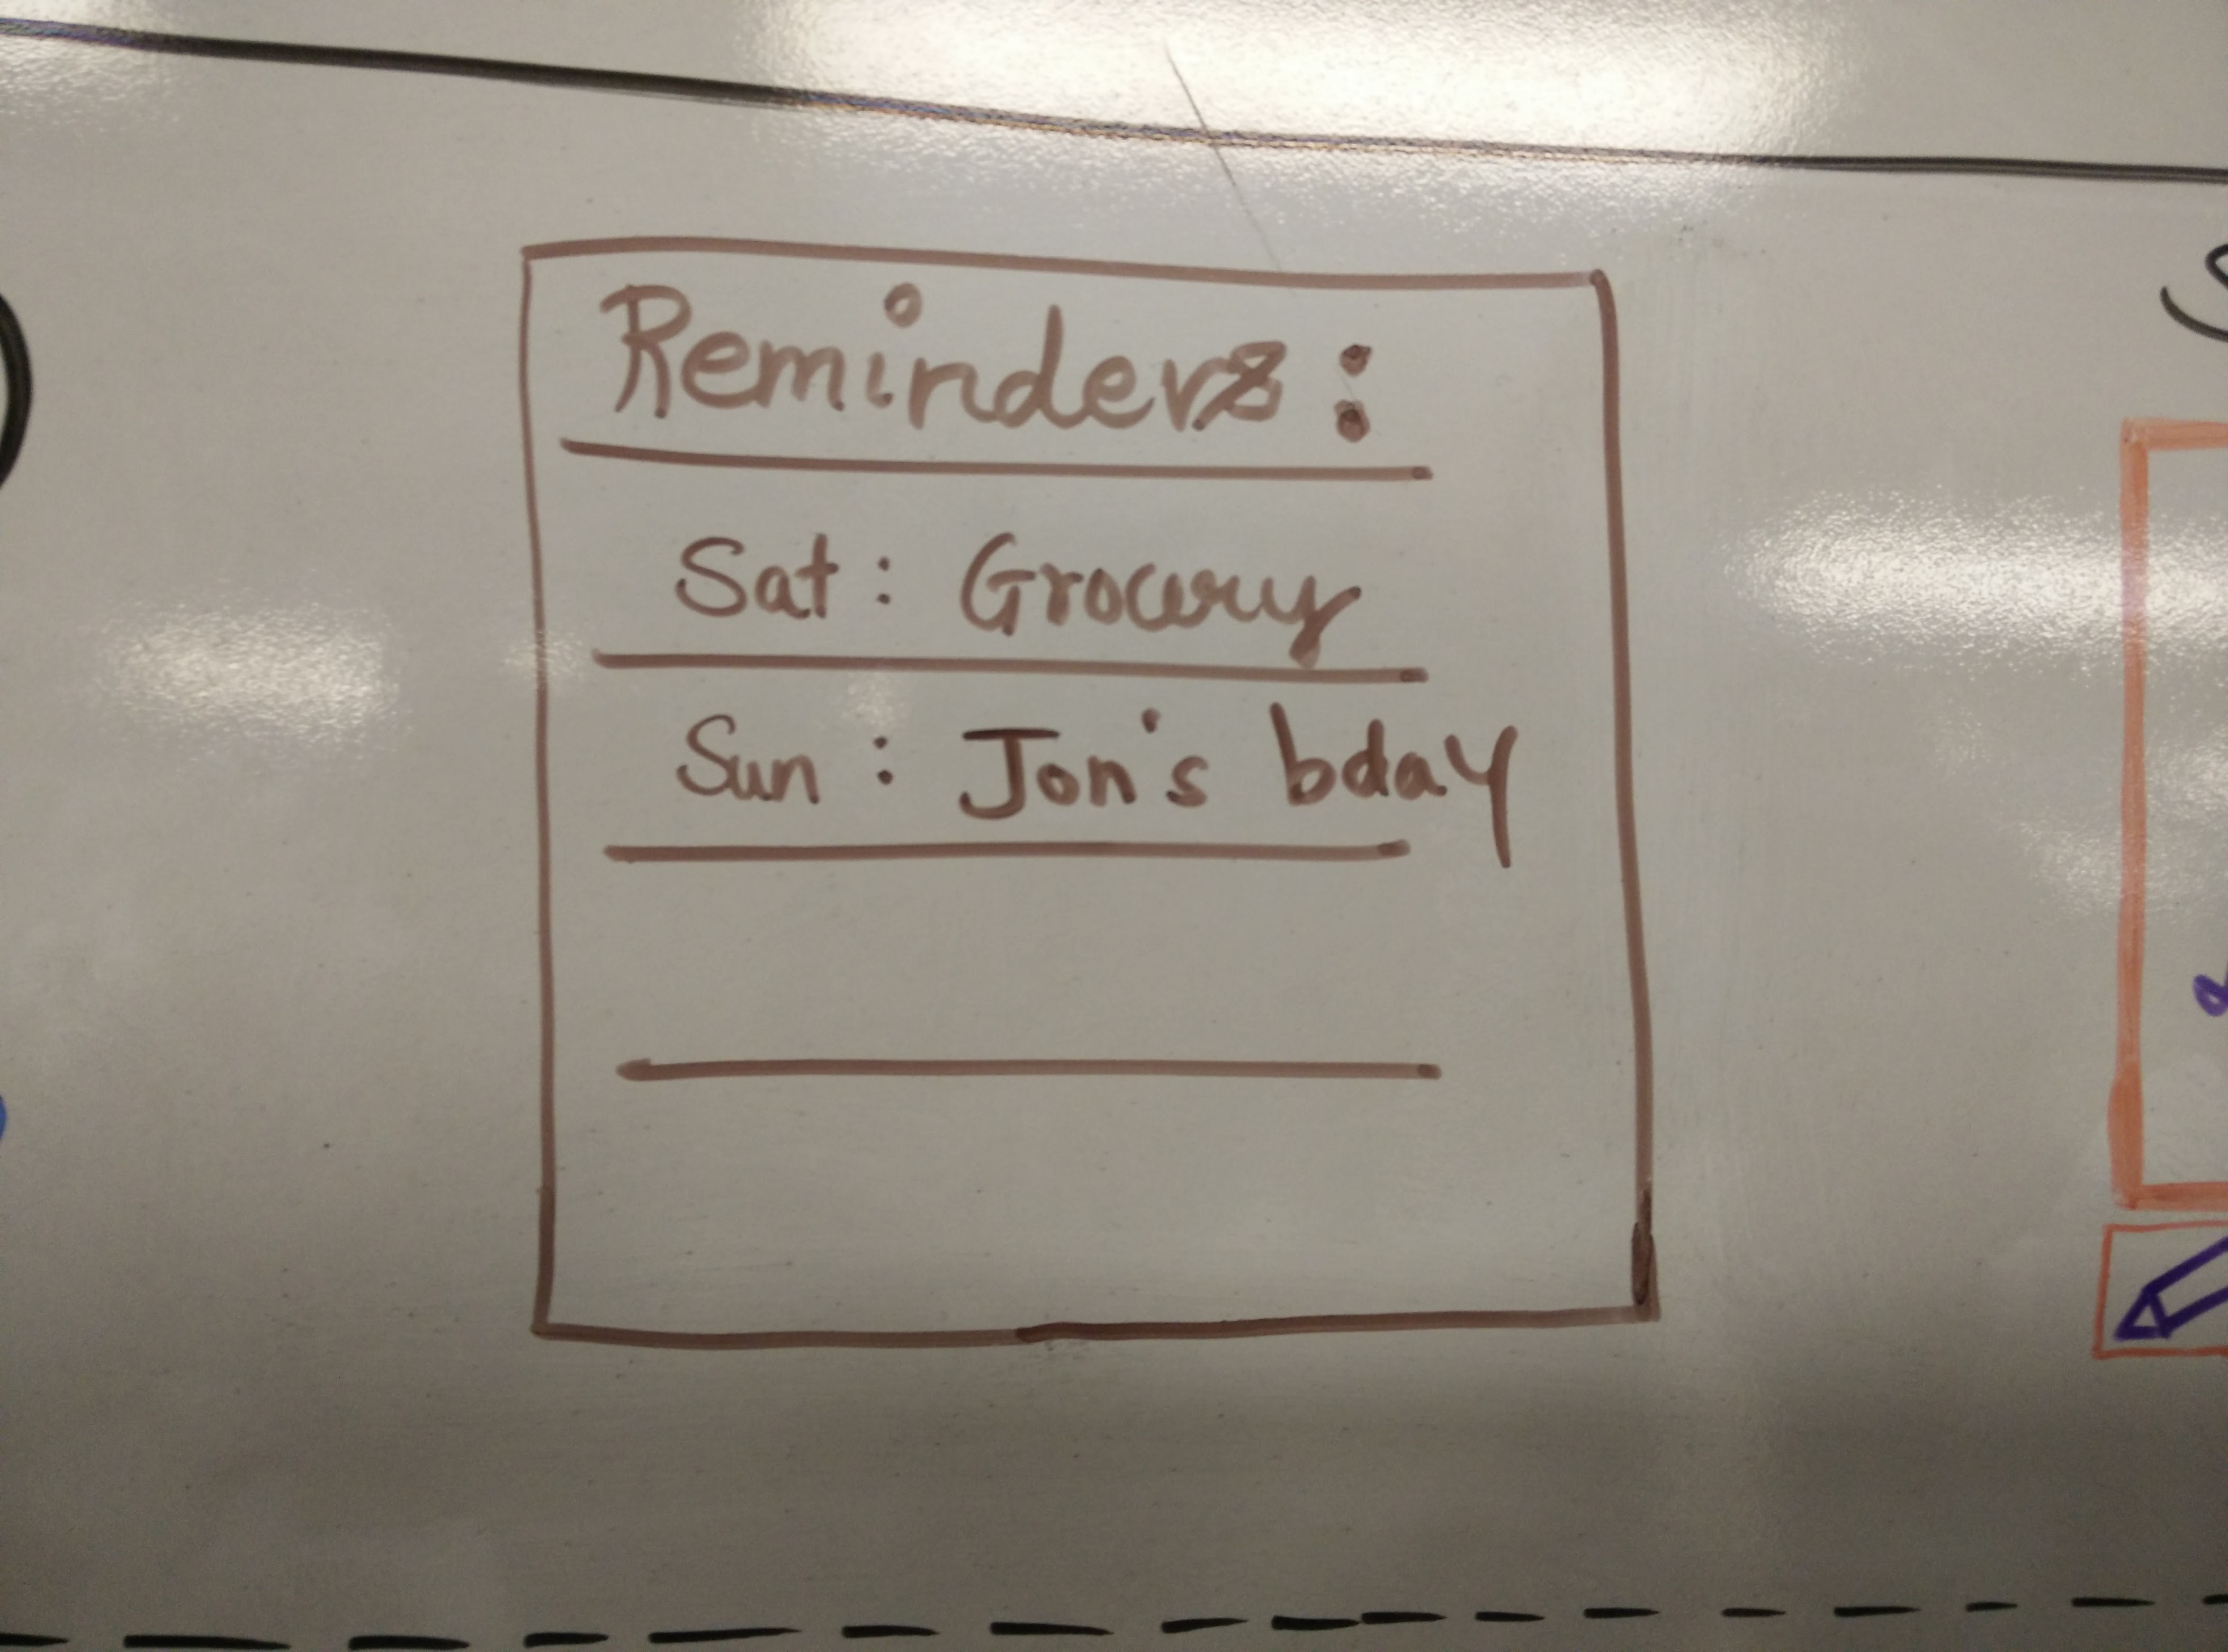 Reminders:
Sat: Grocery
Sun: Jon's bday